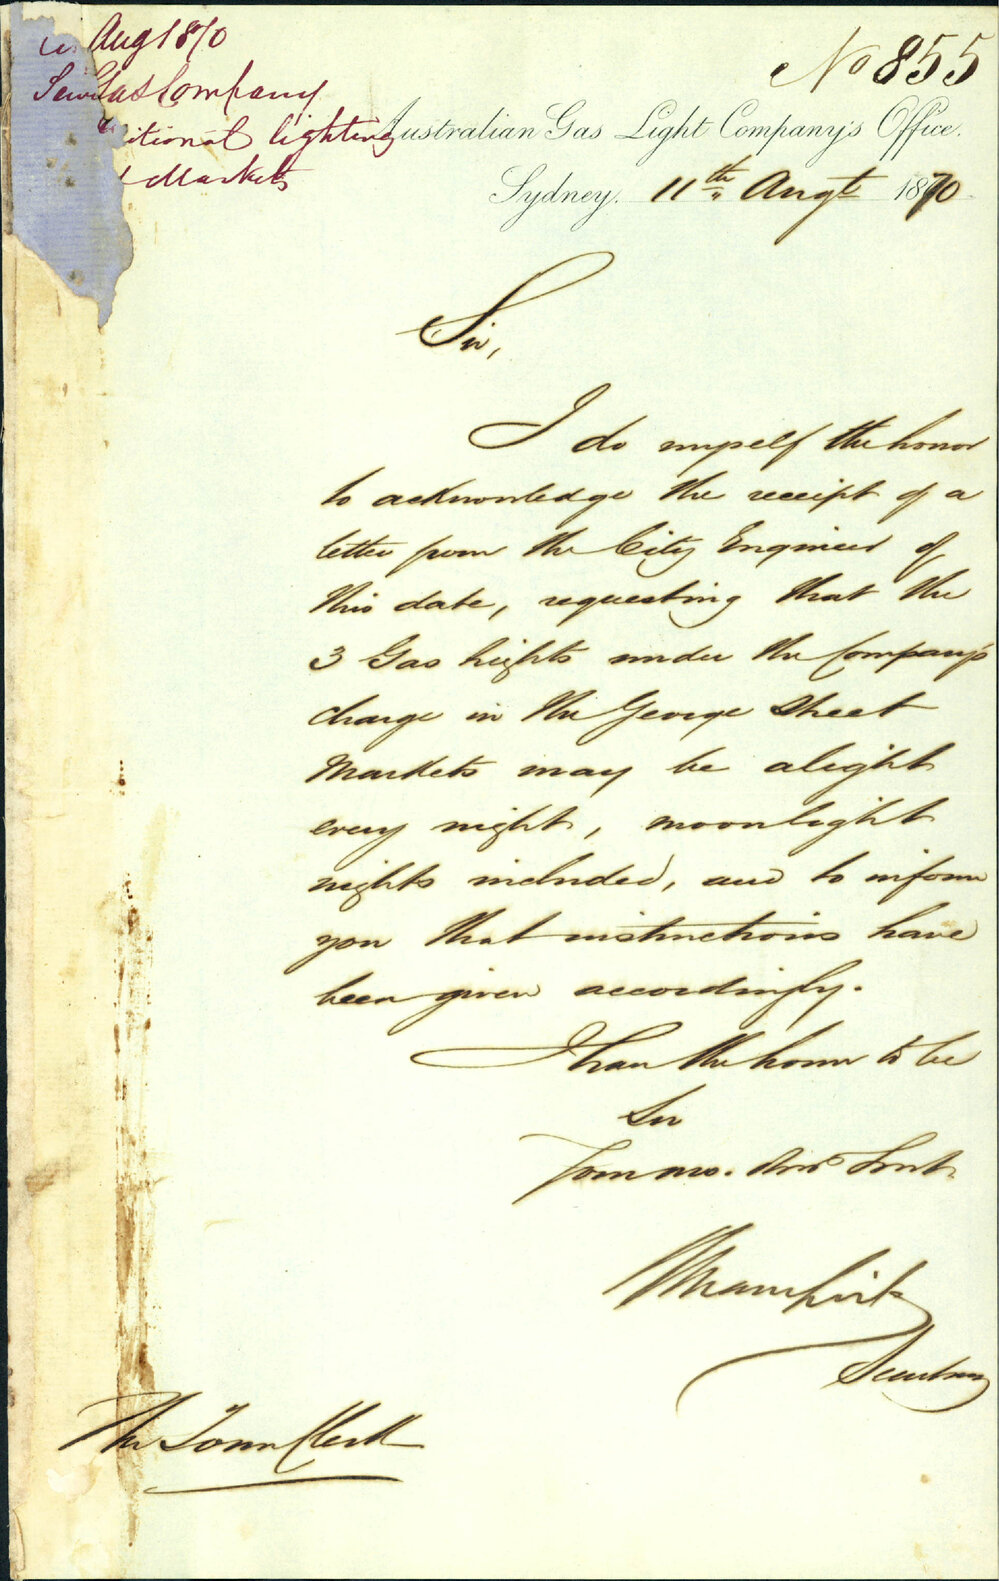 Aug 1870
Gas Company
itional lighting
Markets
No 855
Australian Gas Light Company's Office.
Sydney. 11th Augt 1870
Sir,
I do myself the honor
to acknowledge the receipt of a
letter from the City Engineer of
this date, requesting that the
3 Gas lights under the Company's
charge in the George Street
Markets may be alight
every night, moonlight
nights included, and to inform
you that instructions have
been given accordingly.
I have the honor to be
Sir
Your mo. Obt Servt
Secretary
The Town Clerk